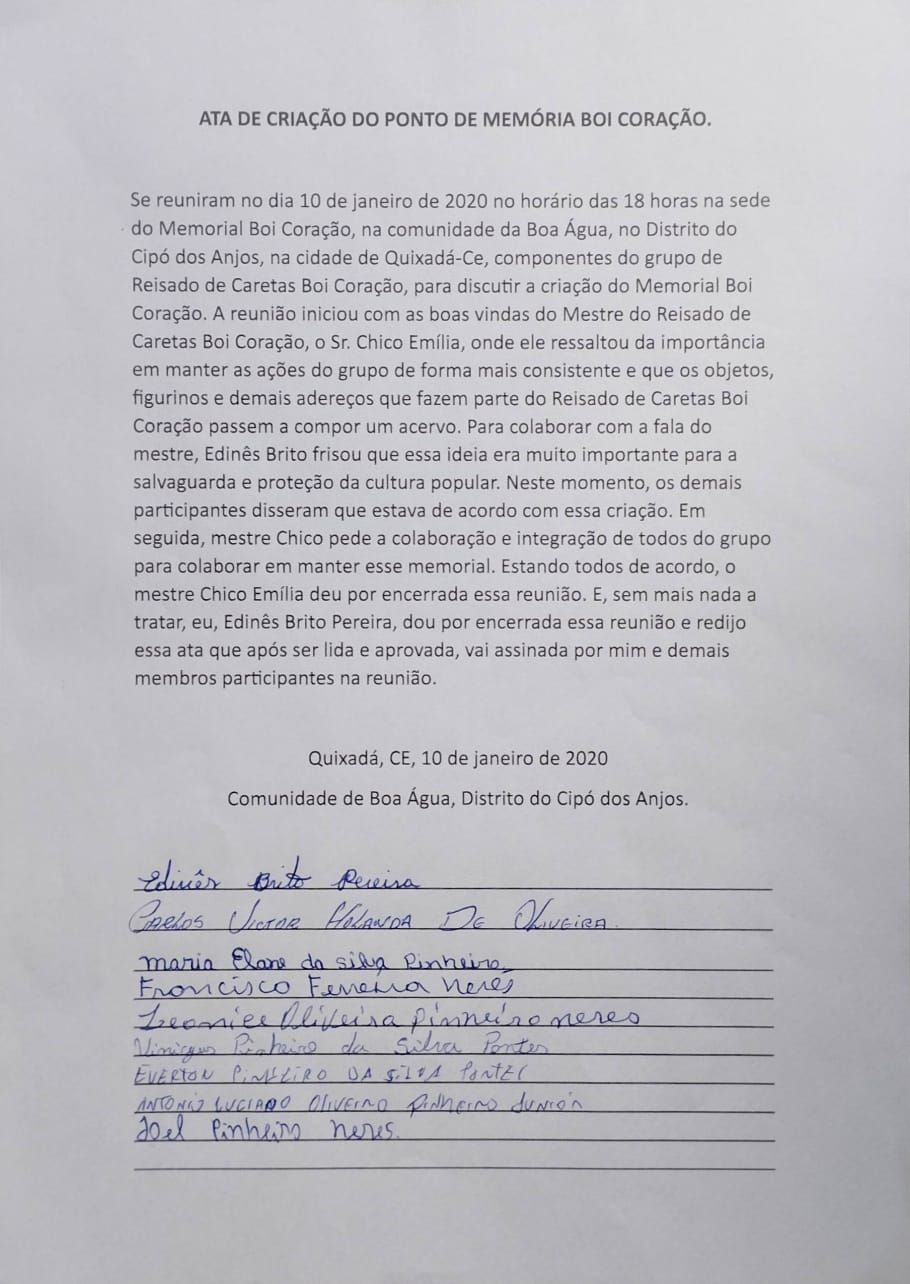 ATA DE CRIAÇÃO DO PONTO DE MEMÓRIA BOI CORAÇÃO.
Se reuniram no dia 10 de janeiro de 2020 no horário das 18 horas na sede
do Memorial Boi Coração, na comunidade da Boa Água, no Distrito do
Cipó dos Anjos, na cidade de Quixadá-Ce, componentes do grupo de
Reisado de Caretas Boi Coração, para discutir a criação do Memorial Boi
Coração. A reunião iniciou com as boas vindas do Mestre do Reisado de
Caretas Boi Coração, o Sr. Chico Emília, onde ele ressaltou da importância
em manter as ações do grupo de forma mais consistente e que os objetos,
figurinos e demais adereços que fazem parte do Reisado de Caretas Boi
Coração passem a compor um acervo. Para colaborar com a fala do
mestre, Edinês Brito frisou que essa ideia era muito importante para a
salvaguarda e proteção da cultura popular. Neste momento, os demais
participantes disseram que estava de acordo com essa criação. Em
seguida, mestre Chico pede a colaboração e integração de todos do grupo
para colaborar em manter esse memorial. Estando todos de acordo, o
mestre Chico Emília deu por encerrada essa reunião. E, sem mais nada a
tratar, eu, Edinês Brito Pereira, dou por encerrada essa reunião e redijo
essa ata que após ser lida e aprovada, vai assinada por mim e demais
membros participantes na reunião.
Quixadá, CE, 10 de janeiro de 2020
Comunidade de Boa Água, Distrito do Cipó dos Anjos.
Edinês Brito Pereira
CARLOS VICTOR HOLANDA DE OLIVEIRA
maria Elane da silva Pinheiro
Francisco Ferreira Neres
Leonice Oliveira pinheiro neres
Pinheiro da Silva Pontes
EVERTON PINHEIRO DA SILVA PONTES
ANTONIO LUCIANO OLIVEIRO PINHEIRO JUNIOR
Joel Pinheiro Neres.